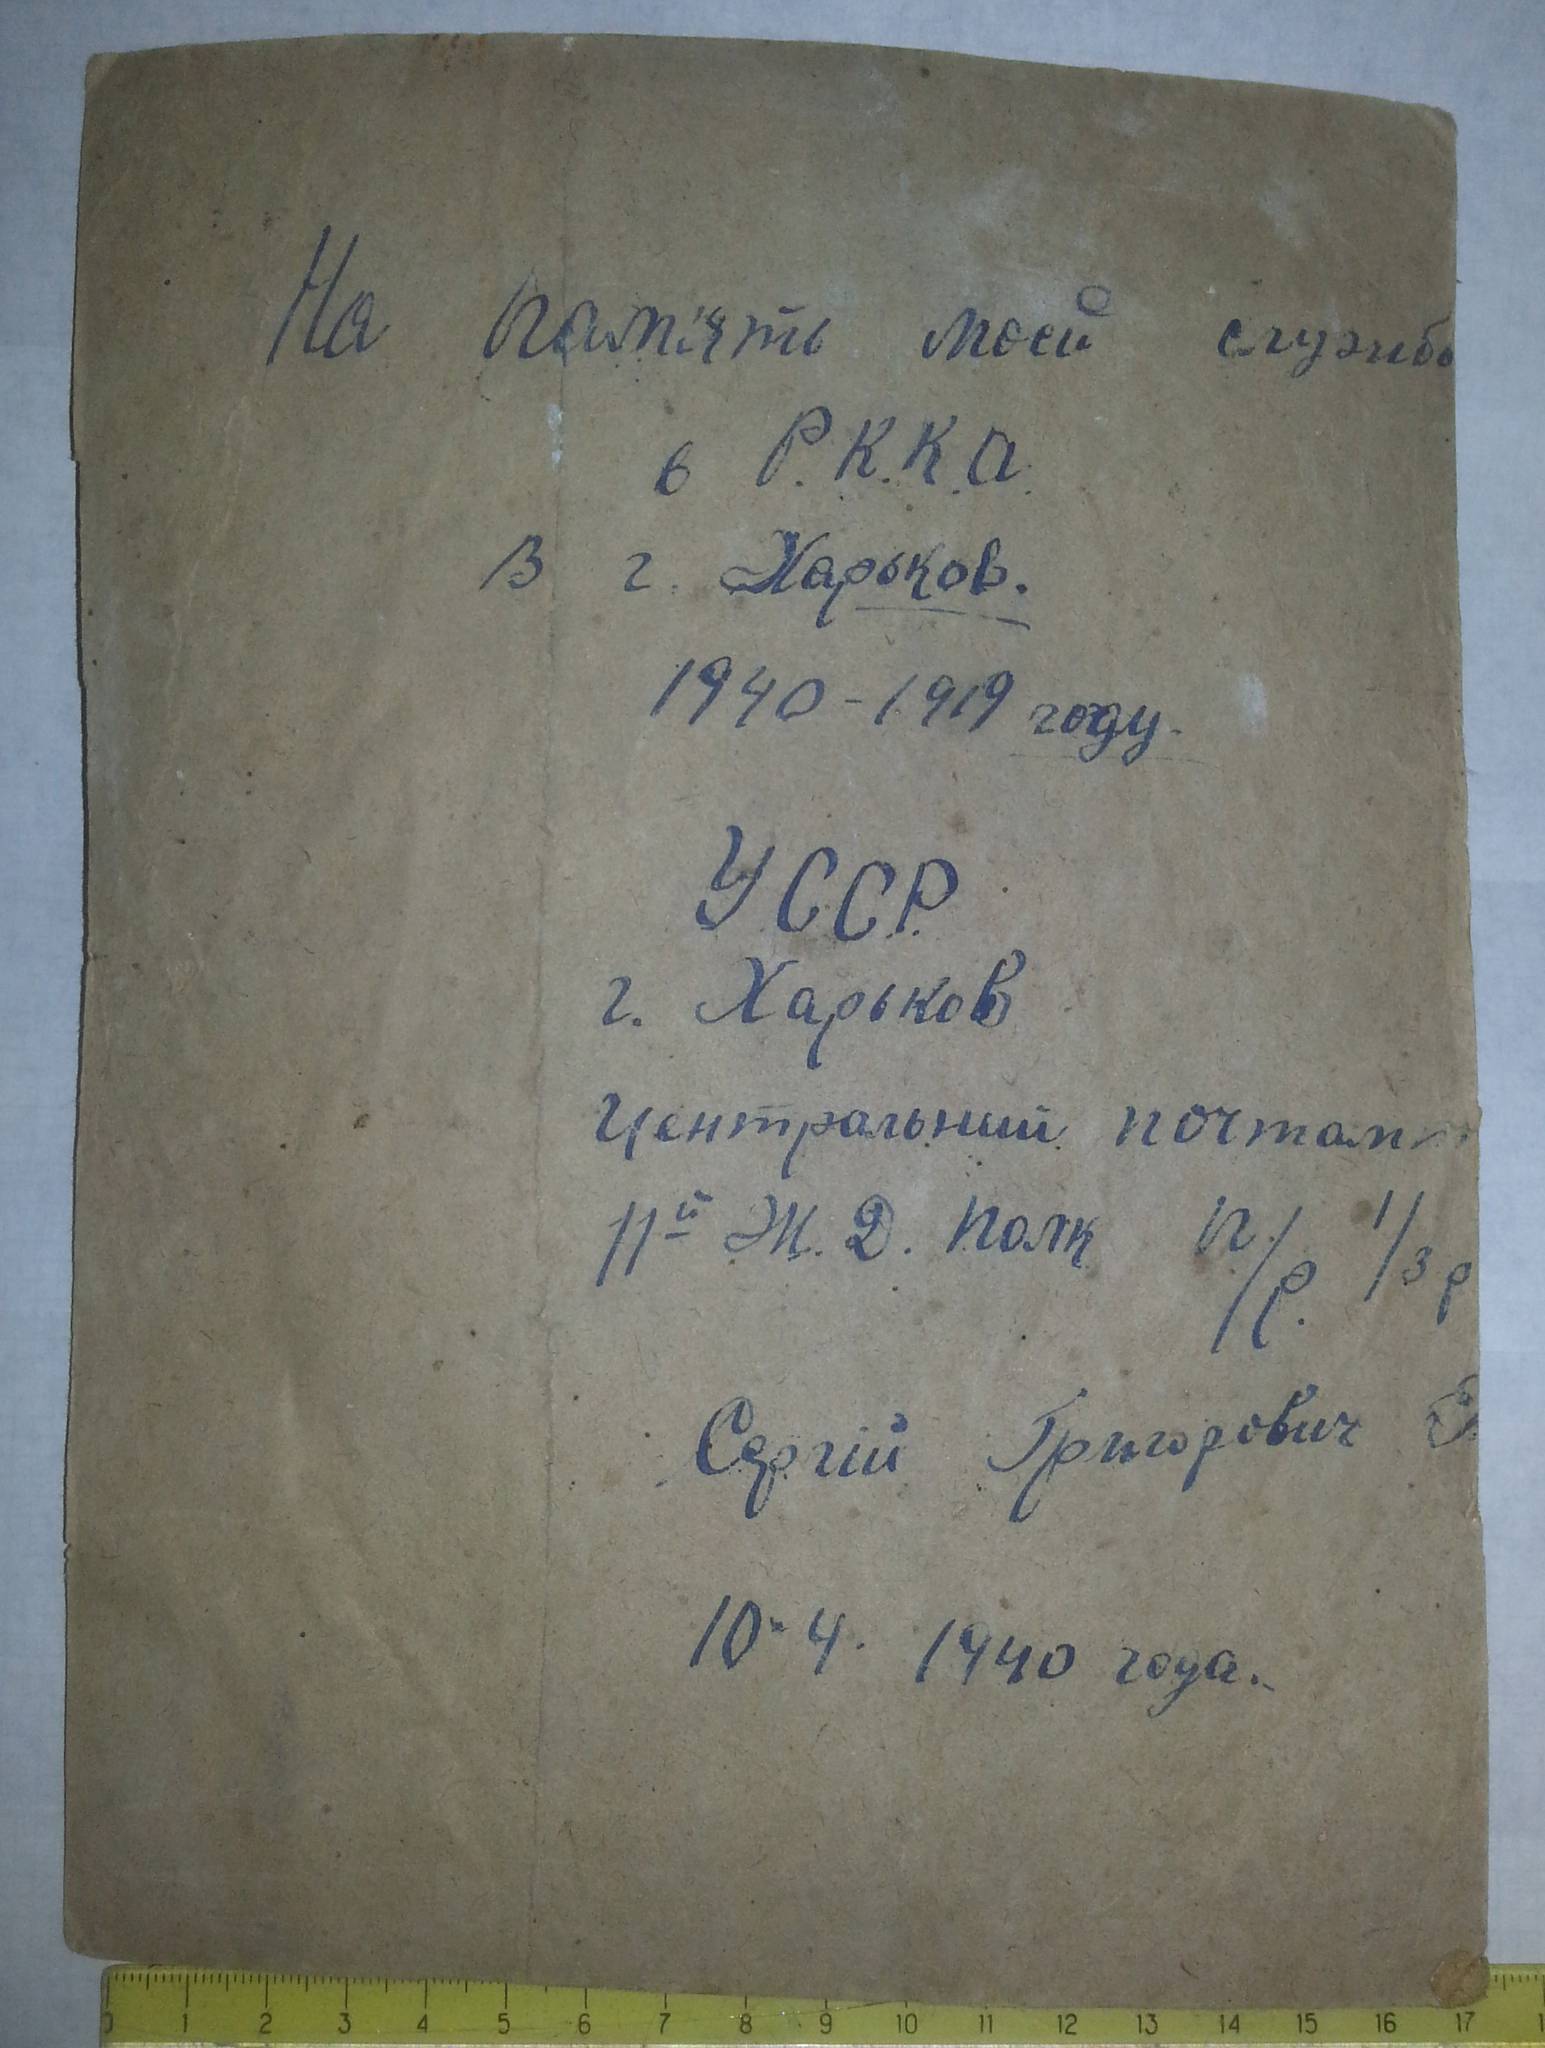 На пам'ять моей службо
в Р.К.К.А.
В г. Харьков.
1940-1919 году.
УССР
г. Харьков
Центральний почтам
11й Ж.Д. Полк П/Р. 1/3 р
Сергій Григорович
10-4. 1940 года.
0 1 2 3 4 5 6 7 8 9 10 11 12 13 14 15 16 17